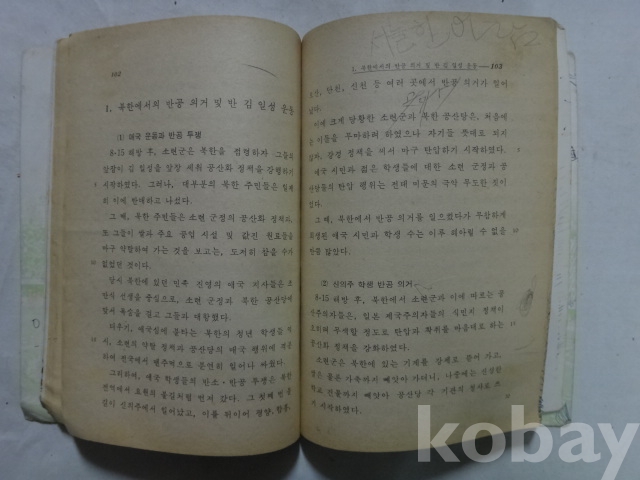 102
1. 북한에서의 반공 의거 및 반 김 일성 운동
⑴ 애국 운동과 반공 투쟁
8·15 해방 후, 소련군은 북한을 점령하자 그들의
앞잡이 김 일성을 앞장 세워 공산화 정책을 강행하기
시작하였다. 그러나, 대부분의 북한 주민들은 일제
히 이에 반대하고 나섰다.
그 때, 북한 주민들은 소련 군정의 공산화 정책과,
또 그들이 쌀과 주요 공업 시설 및 값진 원료들을
마구 약탈하여 가는 것을 보고는, 도저히 참을 수가
없었던 것이다.
당시 북한에 있던 민족 진영의 애국 지사들은 조
만식 선생을 중심으로, 소련 군정과 북한 공산당에
맞서 목숨을 걸고 그들과 대항했다.
더우기, 애국심에 불타는 북한의 청년 학생들은
서, 소련의 약탈 정책과 공산당의 매국 행위에 격분
하여 전국에서 맨주먹으로 분연히 일어나 싸웠다.
그리하여, 애국 학생들의 반소·반공 투쟁은 북한
전역에서 요원의 불길처럼 번져 갔다. 그 첫째 번 운
길이 신의주에서 일어났고, 이를 뒤이어 평양, 함흥,
1. 북한에서의 반공 의거 및 반 김 일성 운동 103
진, 단천, 신천 등 여러 곳에서 반공 의거가 일어
났다.
이에 크게 당황한 소련군과 북한 공산당은, 처음에
는 이들을 무마하려 하였으나 자기들 뜻대로 되지
않자, 강경 정책을 써서 마구 탄압하기 시작하였다.
애국 시민과 젊은 학생들에 대한 소련 군정과 공
산당들의 탄압 행위는 전대 미문의 극악 무도한 것이
었다.
그 때, 북한에서 반공 의거를 일으켰다가 무참하게
희생된 애국 시민과 학생 수는 이루 헤아릴 수 없을
만큼 많았다.
⑵ 신의주 학생 반공 의거
8·15 해방 후, 북한에서 소련군과 이에 따르는 공
산주의자들은, 일본 제국주의자들의 식민지 정책이
무색할 정도로 탄압과 착취를 마음대로 하는
공산화 정책을 강화하였다.
소련군은 북한에 있는 기계를 강제로 뜯어 가고,
은 물론 가축까지 빼앗아 가더니, 나중에는 신성한
학교 건물까지 빼앗아 공산당 각 기관의 청사로 쓰
기 시작하였다.
kobay